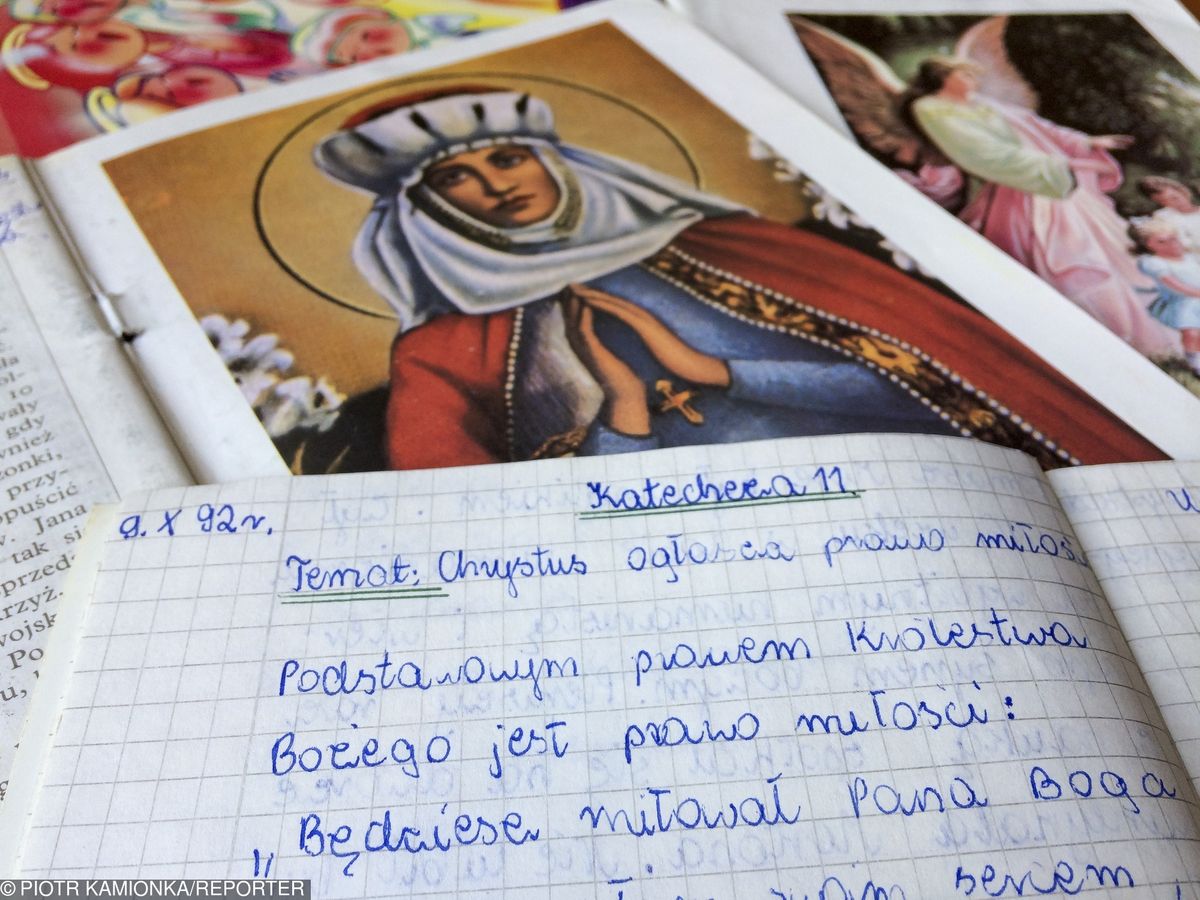 da
ol-
10
wały
gdy
wnież
onki,
przy-
opuścić
w. Jana
tak si
sprzed
krzyż.
wojsk
Po
u,
9. X 92 r.
Katecheza 11
Temat: Chrystus ogłasza prawo miłoś
Podstawowym prawem Królestwa
Bożego jest prawo miłości:
„Będziesz miłował Pana Boga
swoim sercem,
© PIOTR KAMIONKA/REPORTER